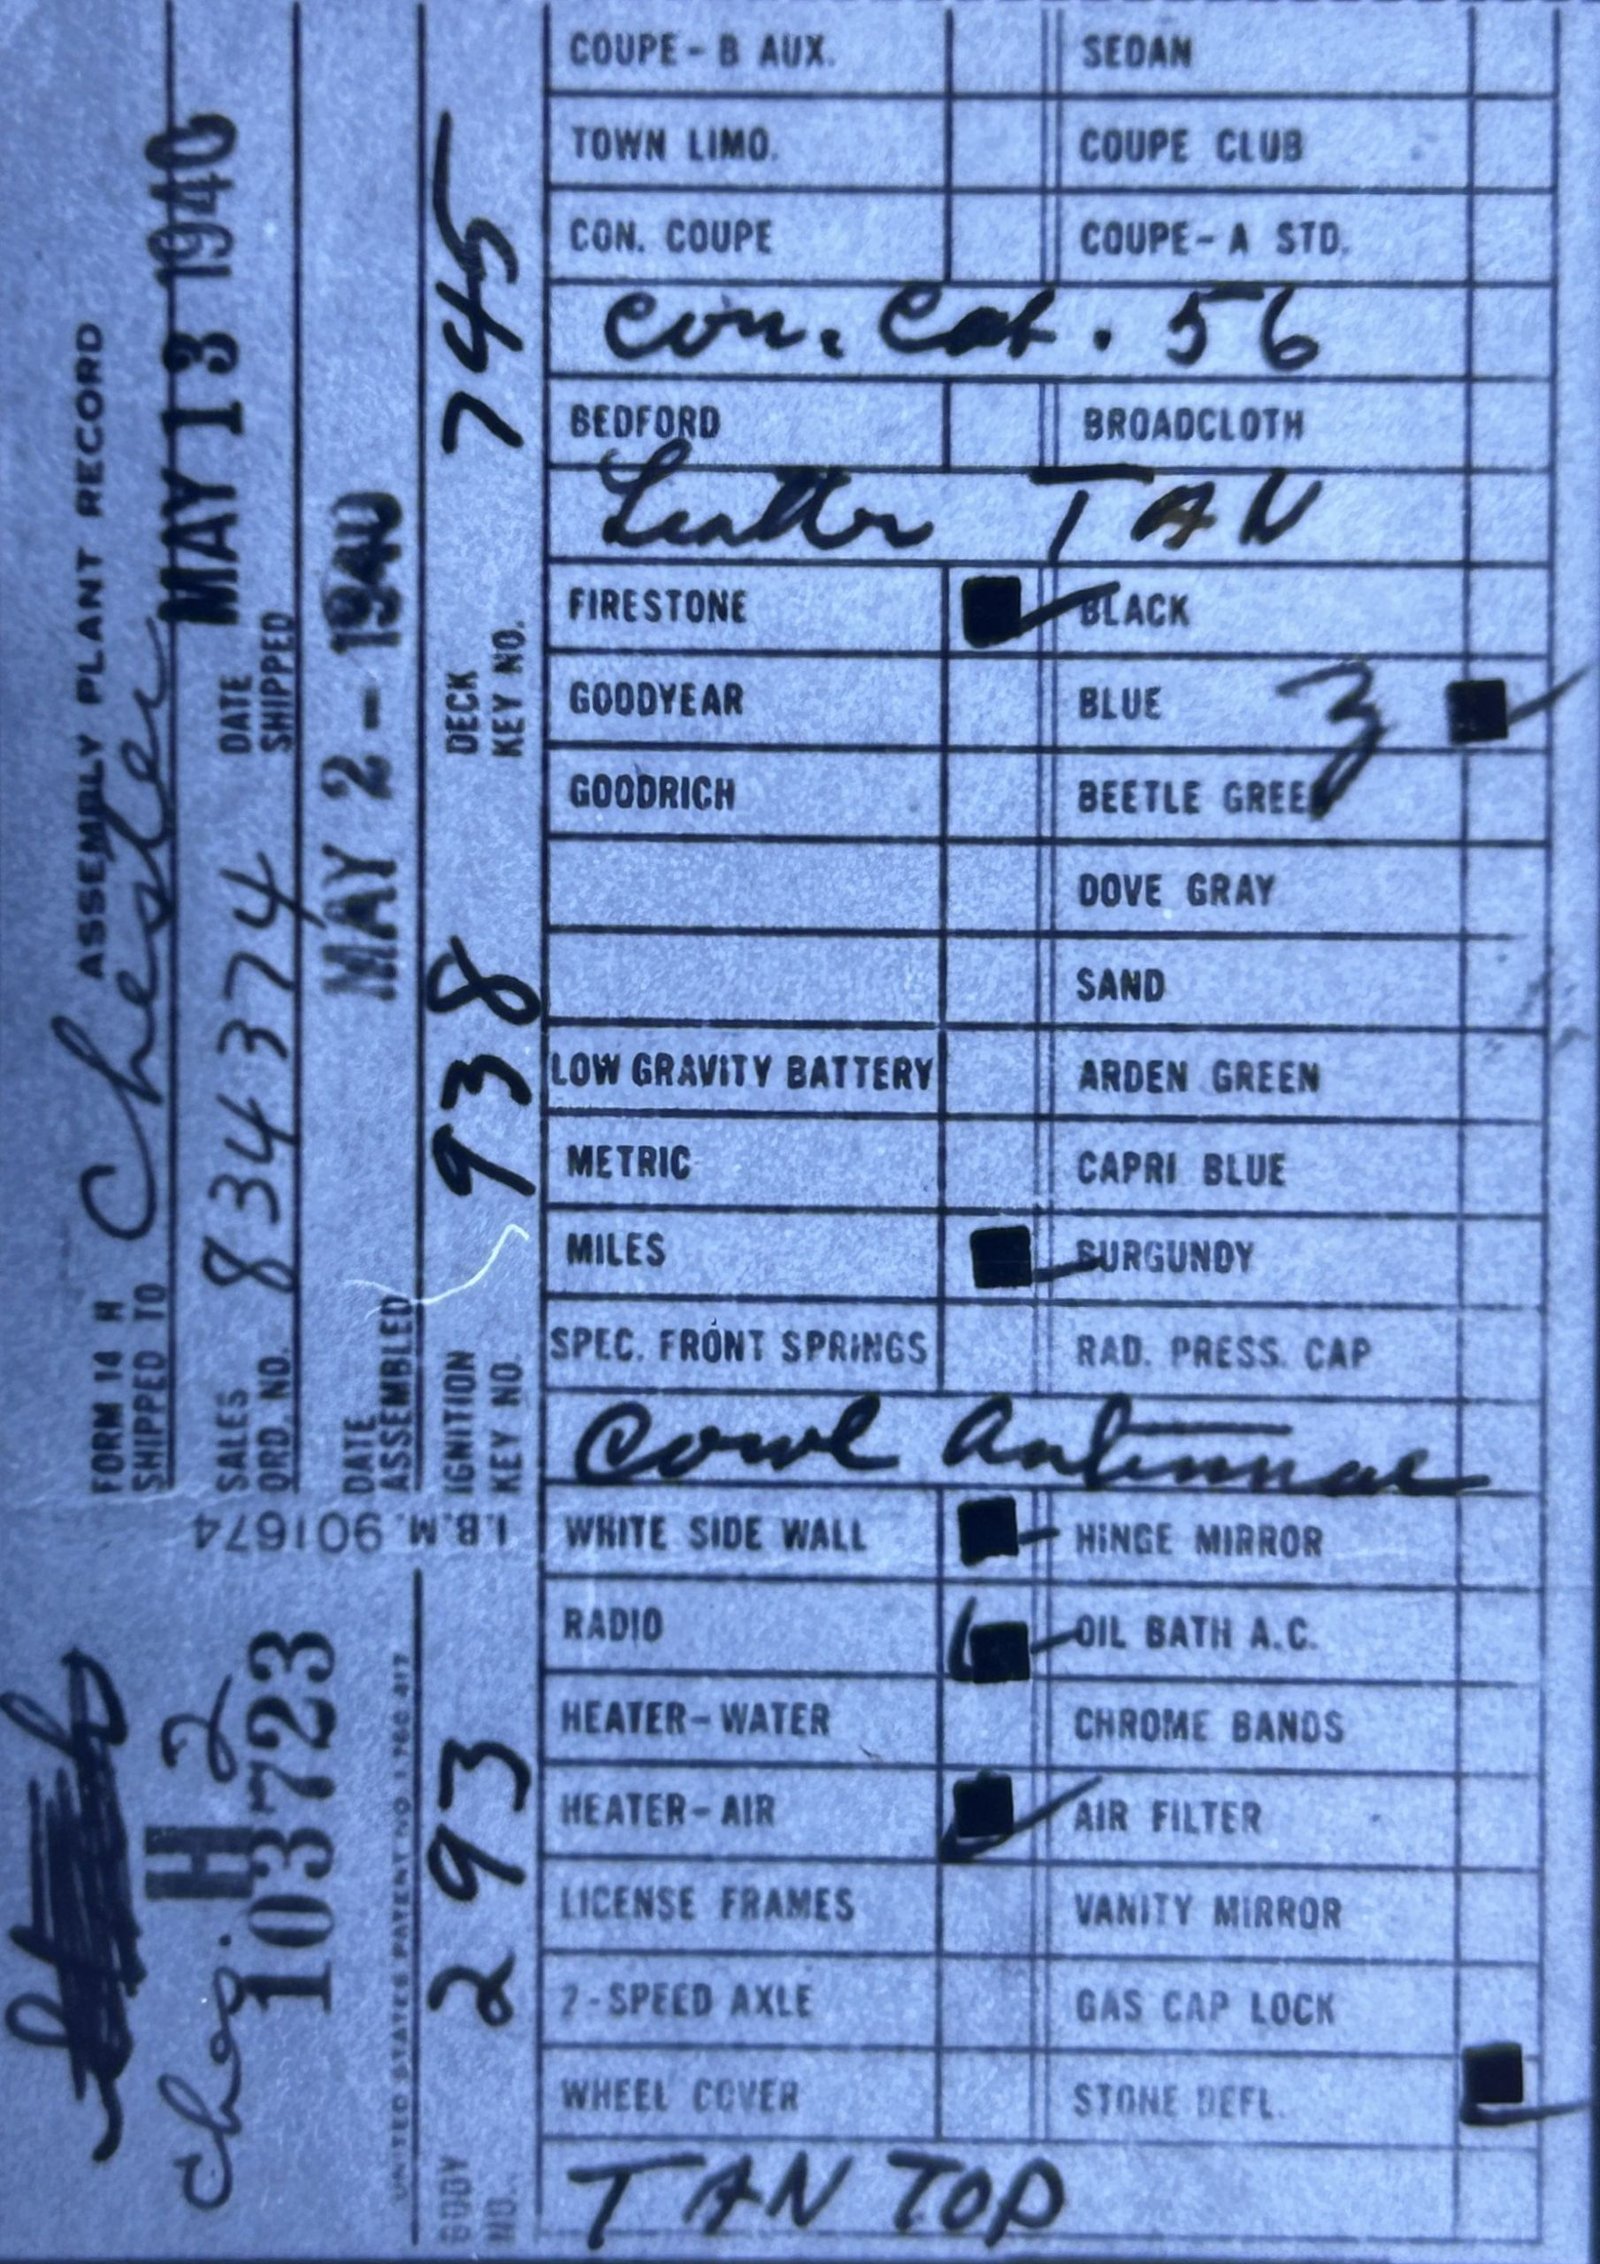 FORM 14 H ASSEMBLY PLANT RECORD
SHIPPED TO Chester
SALES ORD. NO. 834374 DATE SHIPPED MAY 13 1940
DATE ASSEMBLED MAY 2 - 1940
IGNITION KEY NO. 938 DECK KEY NO. 745
I.B.M. 901674
H 2
103723
UNITED STATES PATENT NO 1 766 417
BODY NO. 293
COUPE - B AUX. SEDAN
TOWN LIMO. COUPE CLUB
CON. COUPE COUPE - A STD.
Con. Cab. 56
BEDFORD BROADCLOTH
Leather TAN
FIRESTONE BLACK
GOODYEAR BLUE 3
GOODRICH BEETLE GREEN
DOVE GRAY
SAND
LOW GRAVITY BATTERY ARDEN GREEN
METRIC CAPRI BLUE
MILES BURGUNDY
SPEC. FRONT SPRINGS RAD. PRESS. CAP
Cowl Antennae
WHITE SIDE WALL HINGE MIRROR
RADIO OIL BATH A.C.
HEATER - WATER CHROME BANDS
HEATER - AIR AIR FILTER
LICENSE FRAMES VANITY MIRROR
2 - SPEED AXLE GAS CAP LOCK
WHEEL COVER STONE DEFL.
TAN TOP